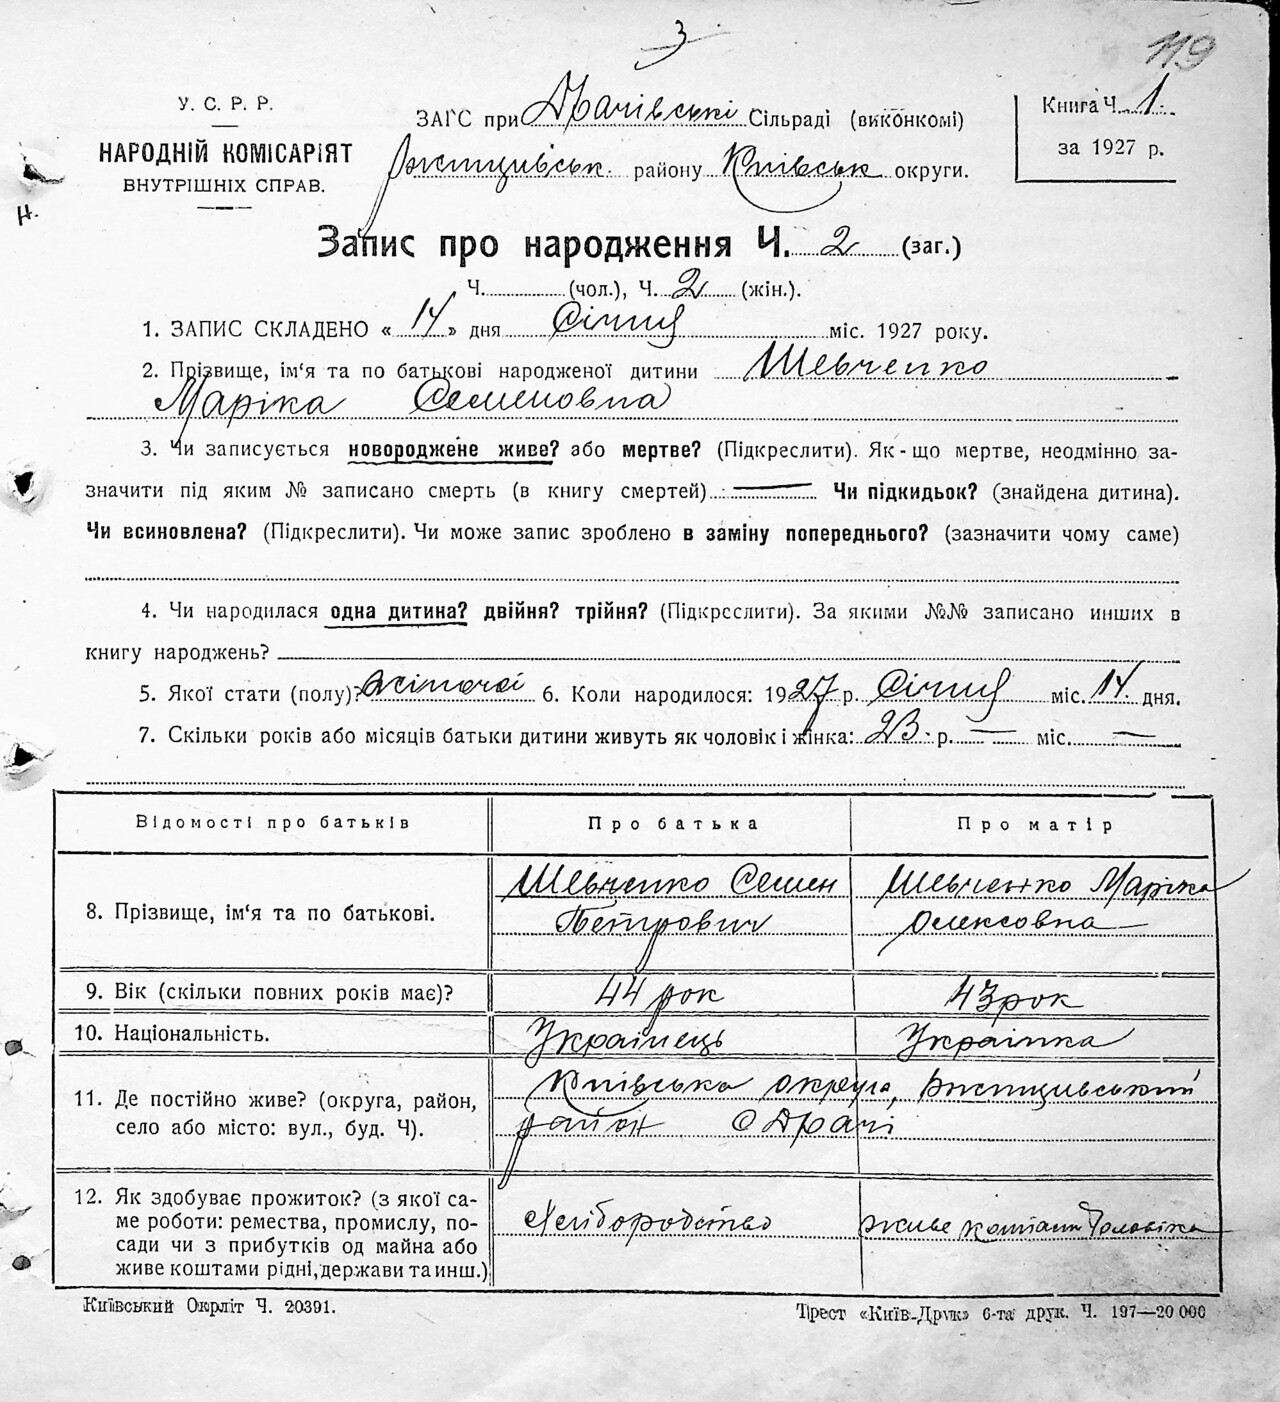 3
119
У. С. Р. Р.
НАРОДНІЙ КОМІСАРІЯТ
ВНУТРІШНІХ СПРАВ.
ЗАГС при Драчівські Сільраді (виконкомі)
Ржищивськ. району Київськ округи.
Книга Ч. 1.
за 1927 р.
Н.
Запис про народження Ч. 2 (заг.)
Ч. (чол.), Ч. 2 (жін.).
1. ЗАПИС СКЛАДЕНО « 14 » дня Січня міс. 1927 року.
2. Прізвище, ім‘я та по батькові народженої дитини Шевченко
Маріка Семеновна
3. Чи записується новороджене живе? або мертве? (Підкреслити). Як-що мертве, неодмінно за-
значити під яким № записано смерть (в книгу смертей) — Чи підкидьок? (знайдена дитина).
Чи всиновлена? (Підкреслити). Чи може запис зроблено в заміну попереднього? (зазначити чому саме)
4. Чи народилася одна дитина? двійня? трійня? (Підкреслити). За якими №№ записано инших в
книгу народжень?
5. Якої стати (полу)? жіночої 6. Коли народилося: 1927 р. Січня міс. 14. дня.
7. Скільки років або місяців батьки дитини живуть як чоловік і жінка: 23. р. — міс. —
Відомості про батьків
Про батька
Про матір
8. Прізвище, ім‘я та по батькові.
Шевченко Семен
Петрович
Шевченко Маріка
Олексовна
9. Вік (скільки повних років має)?
44 рок
43 рок
10. Національність.
Українець
Українка
11. Де постійно живе? (округа, район,
село або місто: вул., буд. Ч).
Київська округа, Ржищивський
район с Драчі
12. Як здобуває прожиток? (з якої са-
ме роботи: ремества, промислу, по-
сади чи з прибутків од майна або
живе коштами рідні, держави та инш.)
Хліборобство
живе коштами Чоловіка
Київський Окрліт Ч. 20391.
Трест «Київ-Друк» 6-та друк. Ч. 197—20 000